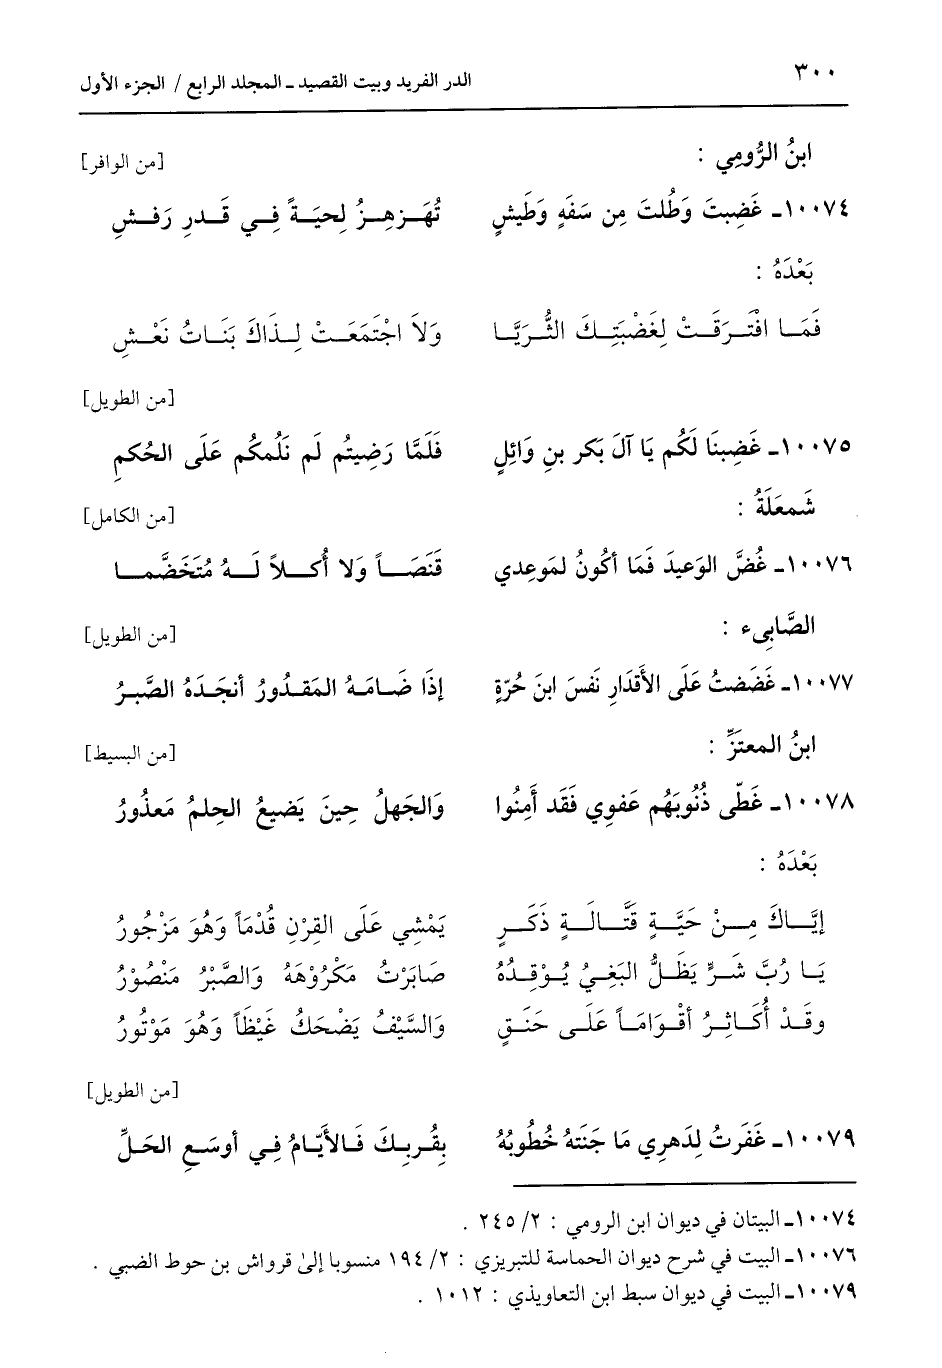 ٣٠٠ الدر الفريد وبيت القصيد ـ المجلد الرابع / الجزء الأول
ابنُ الرُّومِي : [من الوافر]
١٠٠٧٤ـ غَضِبتَ وَظُلتَ مِن سَفَهٍ وَطَيشٍ تُهَزهِزُ لِحيَةً فِي قَدرِ رَفشِ
بَعْدَهُ :
فَمَا افْتَرَقَتْ لِغَضْبَتِكَ الثُّرَيَّا وَلاَ اجْتَمَعَتْ لِذَاكَ بَنَاتُ نَعْشِ
[من الطويل]
١٠٠٧٥ـ غَضِبنَا لَكُم يَا آلَ بَكر بنِ وَائِلٍ فَلَمَّا رَضِيتُم لَم نَلُمكُم عَلَى الحُكمِ
شَمعَلَةُ : [من الكامل]
١٠٠٧٦ـ غُضَّ الوَعِيدَ فَمَا أكُونُ لمَوعِدي قَنَصَاً وَلا أُكلاً لَهُ مُتَخَضَّما
الصَّابِىء : [من الطويل]
١٠٠٧٧ـ غَضَضتُ عَلَى الأقدَارِ نَفسَ ابنَ حُرّةٍ إذَا ضَامَهُ المَقدُورُ أنجَدَهُ الصَّبرُ
ابنُ المعتَزِّ : [من البسيط]
١٠٠٧٨ـ غَطّى ذُنُوبَهُم عَفوِي فَقَد أَمِنُوا وَالجَهلُ حِينَ يَضيعُ الحِلمُ مَعذُورُ
بَعْدَهُ :
إيَّاكَ مِنْ حَيَّةٍ قَتَّالَةٍ ذَكَرٍ يَمْشِي عَلَى القِرْنِ قُدْمَاً وَهُوَ مَزْجُورُ
يَا رُبَّ شَرٍّ يَظَلُّ البَغيُ يُوْقِدُهُ صَابَرْتُ مَكْرُوْهَهُ وَالصَّبْرُ مَنْصُوْرُ
وقَدْ أُكَاثِرُ أقْوَامَاً عَلَى حَنَقٍ وَالسَّيْفُ يَضْحَكُ غَيْظَاً وَهُوَ مَوْتُورُ
[من الطويل]
١٠٠٧٩ـ غَفَرتُ لِدَهرِي مَا جَنَتهُ خُطُوبُهُ بِقُربِكَ فَالأَيّامُ فِي أوسَعِ الحَلِّ
١٠٠٧٤ـ البيتان في ديوان ابن الرومي : ٢/ ٢٤٥ .
١٠٠٧٦ـ البيت في شرح ديوان الحماسة للتبريزي : ٢/ ١٩٤ منسوبا إلى قرواش بن حوط الضبي .
١٠٠٧٩ـ البيت في ديوان سبط ابن التعاويذي : ١٠١٢ .